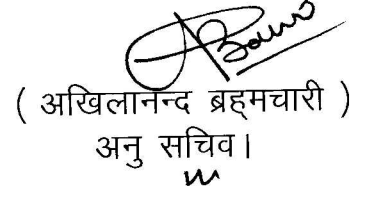 ( अखिलानन्द ब्रह्मचारी )
अनु सचिव।